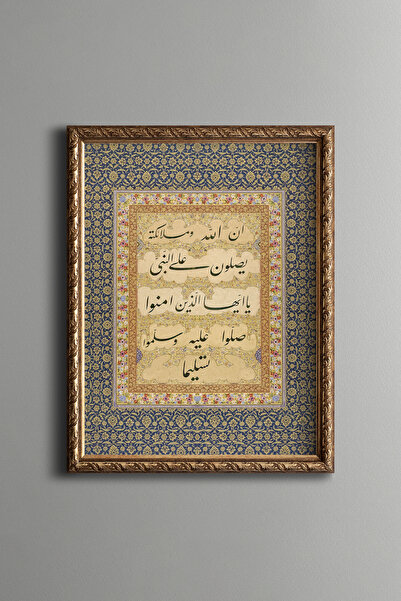 ان الله وملائكة
يصلون على النبى
ياايها الذين امنوا
صلوا عليه وسلموا
تسليما